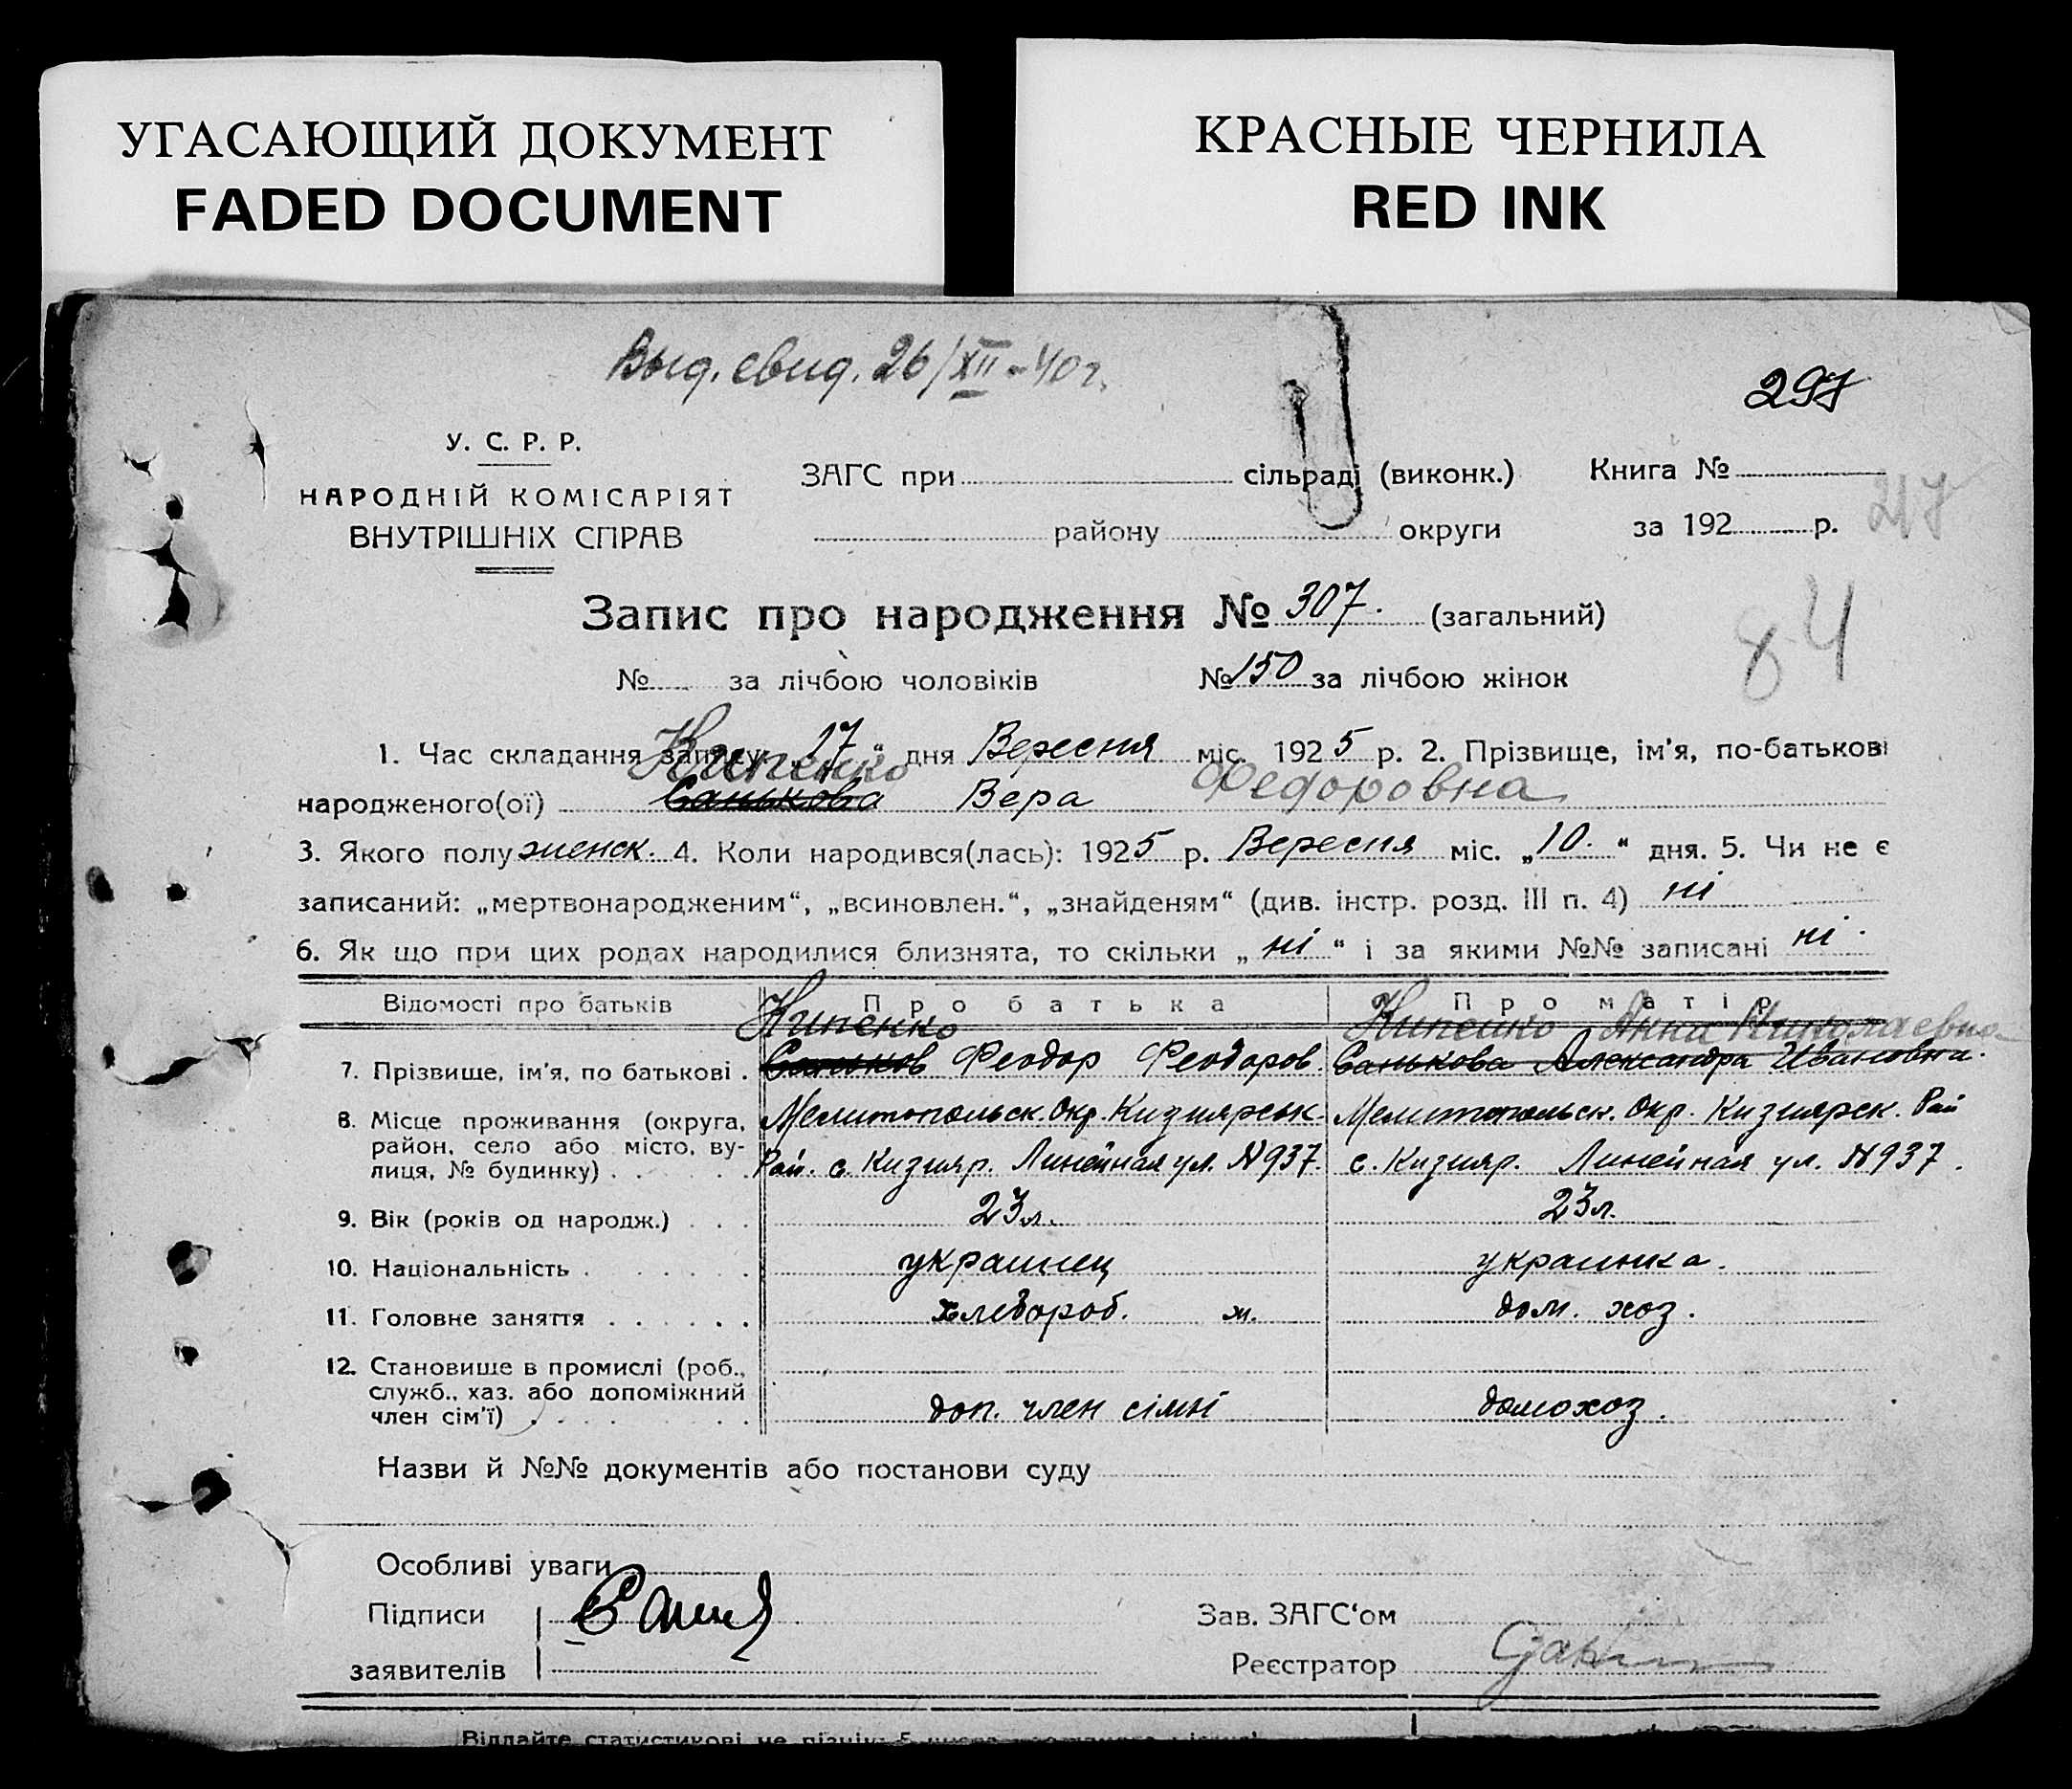 УГАСАЮЩИЙ ДОКУМЕНТ
FADED DOCUMENT
КРАСНЫЕ ЧЕРНИЛА
RED INK
Выд. свид. 26/XII-40 г.
297
У. С. Р. Р.
НАРОДНІЙ КОМІСАРІЯТ
ВНУТРІШНІХ СПРАВ
ЗАГС при сільраді (виконк.) Книга №
району округи за 192 р.
217
Запис про народження № 307. (загальний)
84
№ за лічбою чоловіків № 150 за лічбою жінок
1. Час складання запису „17“ дня Вересня міс. 1925 р. 2. Прізвище, ім'я, по-батькові
Кипенко
народженого(ої) Санькова Вера Федоровна
3. Якого полу женск. 4. Коли народився(лась): 1925 р. Вересня міс. „10.“ дня. 5. Чи не є
записаний: „мертвонародженим“, „всиновлен.“, „знайденям“ (див. інстр. розд. III п. 4) ні
6. Як що при цих родах народилися близнята, то скільки „ні“ і за якими №№ записані ні.
Відомості про батьків Про батька Про матір
Кипенко Кипенко Анна Николаевна
7. Прізвище, ім'я, по батькові . Саньков Феодор Феодоров. Санькова Александра Ивановна.
8. Місце проживання (округа, район, село або місто, вулиця, № будинку) . . .
Мелитопольск. Окр. Кизиярськ. Рай. с. Кизияр. Линейная ул. №937.
Мелитопольск. Окр. Кизиярск. Рай с. Кизияр. Линейная ул. №937.
9. Вік (років од народж.) . . . 23 л. 23 л.
10. Національність . . . . . . украинец украинка.
11. Головне заняття . . . . . . хлебороб. м. дом. хоз.
12. Становище в промислі (роб., служб., хаз. або допоміжний член сім'ї) . . . . . .
доп. член сімні домохоз.
Назви й №№ документів або постанови суду
Особливі уваги
Підписи
заявителів
Зав. ЗАГС'ом
Реєстратор
Віддайте статистикові не пізніш 5